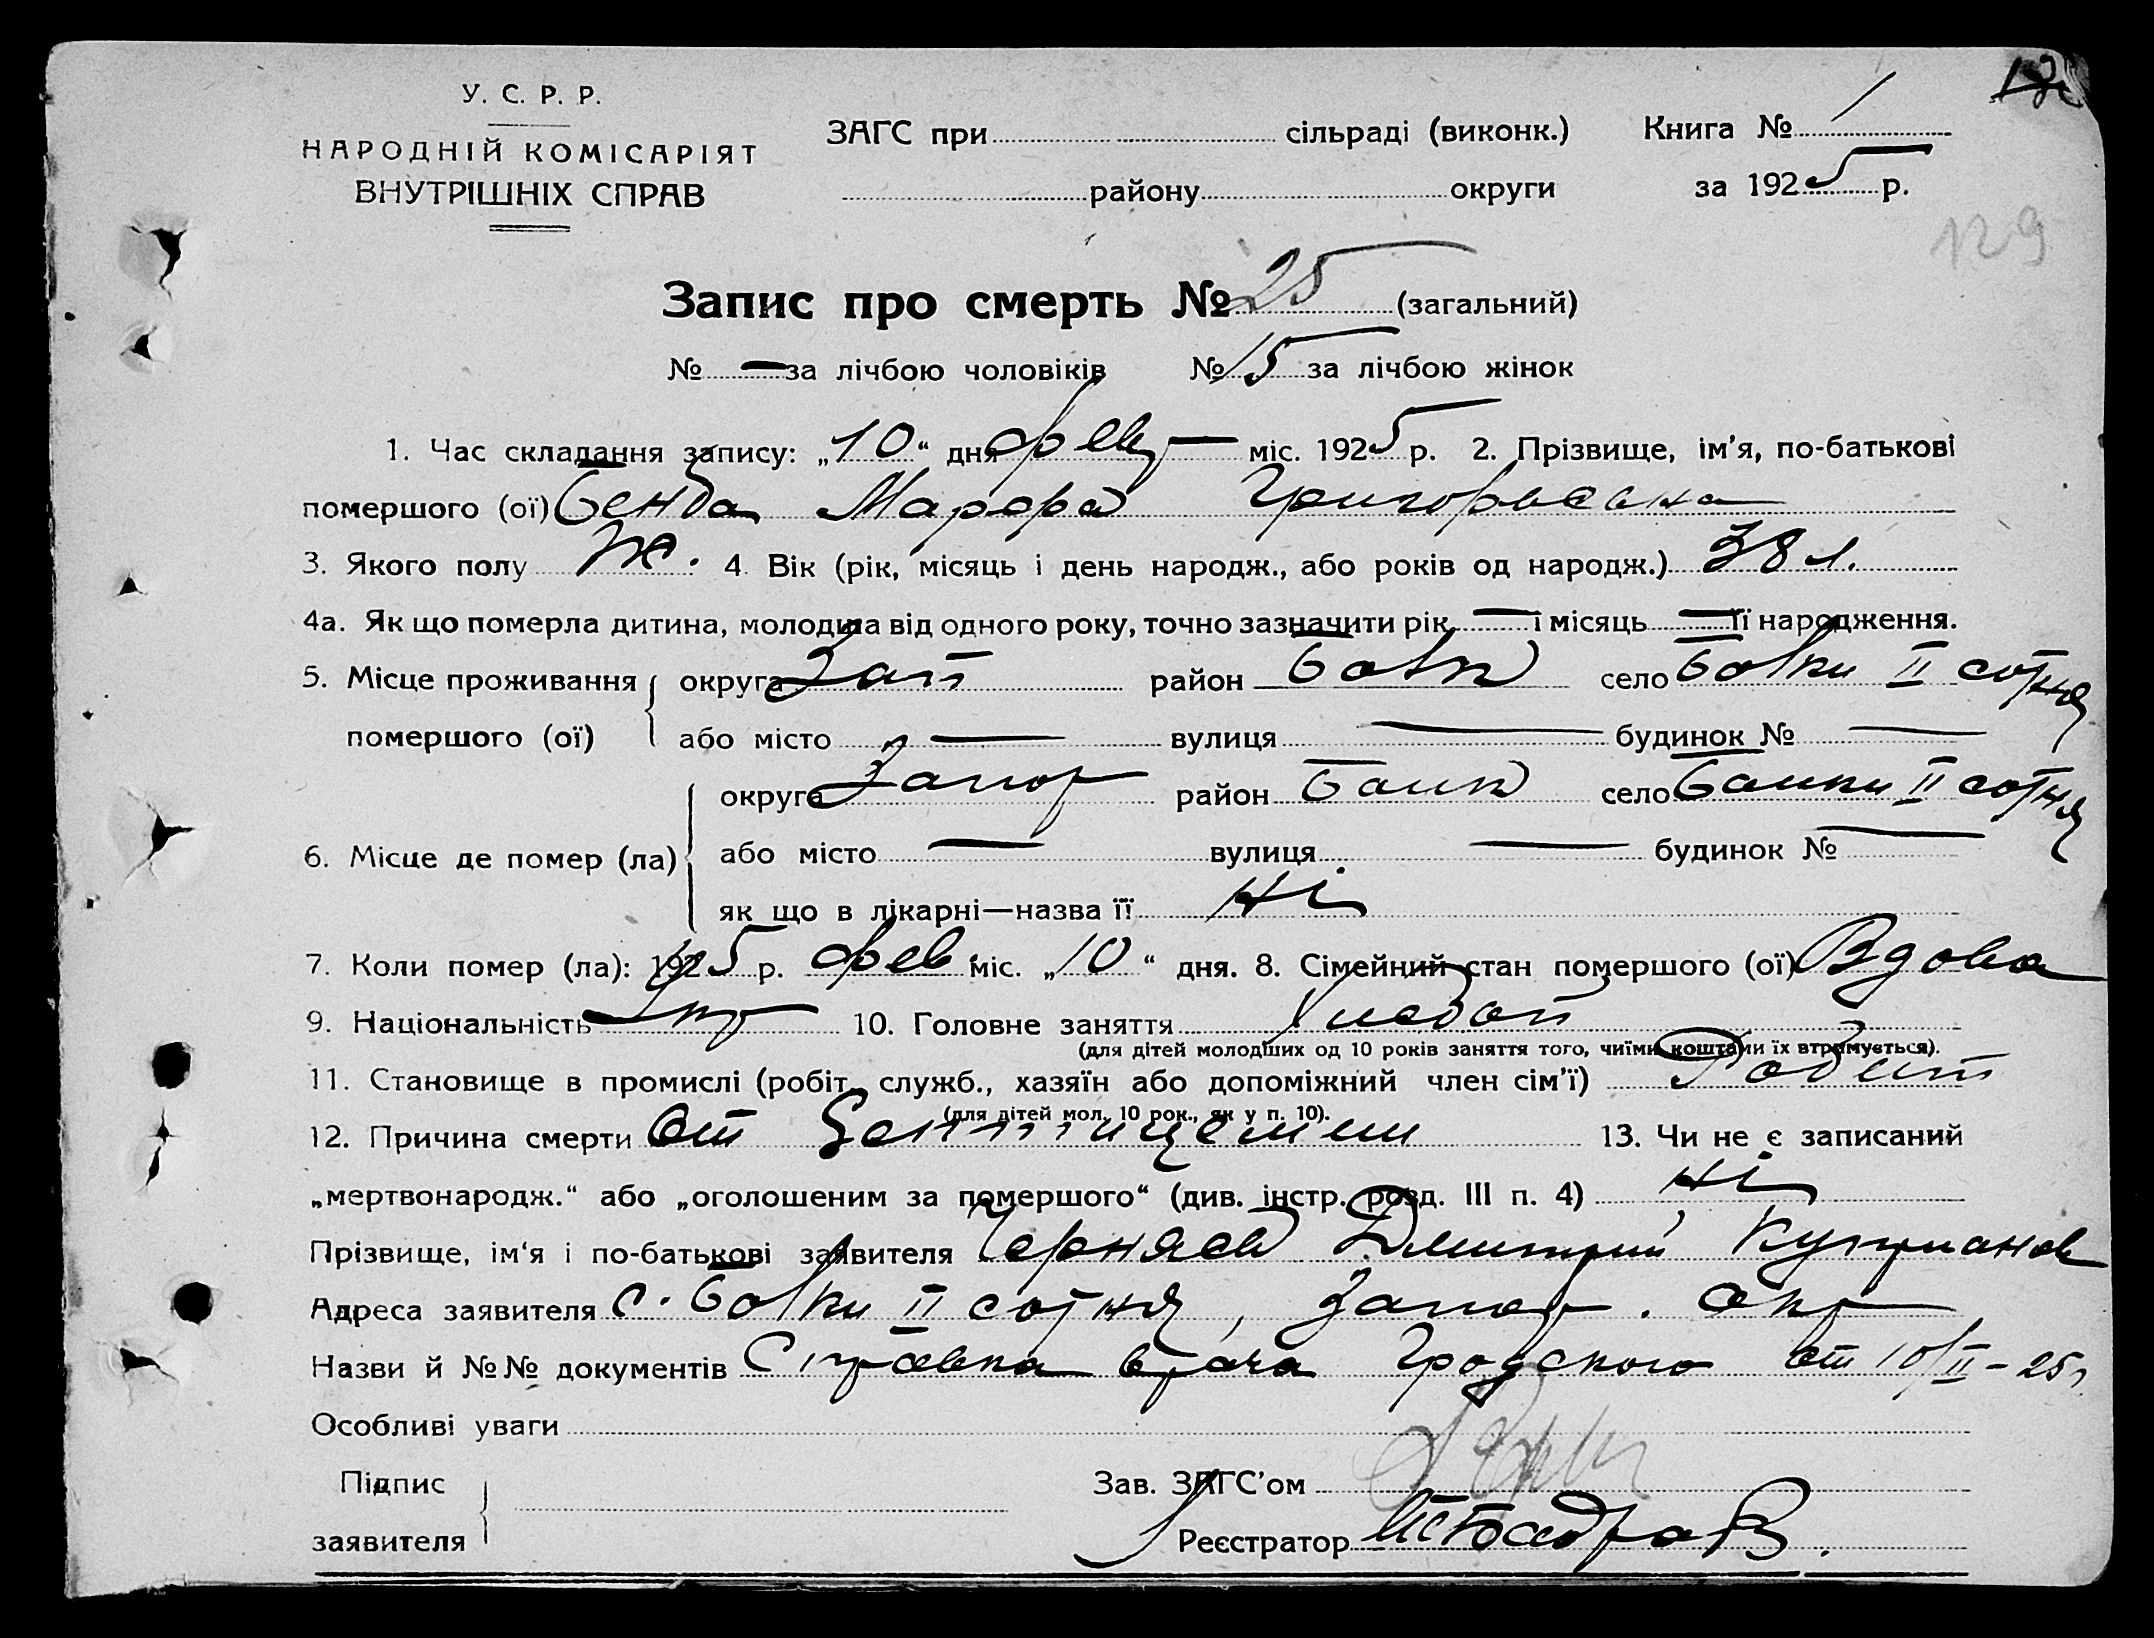 У. С. Р. Р.
НАРОДНІЙ КОМІСАРІЯТ
ВНУТРІШНІХ СПРАВ
ЗАГС при сільраді (виконк.)
району округи
Книга № 1
за 1925 р.
129
Запис про смерть № 25 (загальний)
№ — за лічбою чоловіків № 15 за лічбою жінок
1. Час складання запису: „10“ дня фев міс. 1925 р. 2. Прізвище, ім'я, по-батькові
помершого (ої) Бенда Марфа Григорьевна
3. Якого полу Ж. 4. Вік (рік, місяць і день народж., або років од народж.) 38 л.
4а. Як що померла дитина, молодша від одного року, точно зазначити рік — і місяць — її народження.
5. Місце проживання помершого (ої) округа Зап район село II сотня
або місто — вулиця — будинок № —
6. Місце де помер (ла) округа Запор район село II сотня
або місто — вулиця — будинок № —
як що в лікарні—назва її Ні
7. Коли помер (ла): 1925 р. фев міс. „10“ дня. 8. Сімейний стан помершого (ої) Вдова
9. Національність Укр 10. Головне заняття Хлебоп
(для дітей молодших од 10 років заняття того, чиїми коштами їх втримується).
11. Становище в промислі (робіт., служб., хазяїн або допоміжний член сім'ї)
(для дітей мол. 10 рок., як у п. 10).
12. Причина смерти от 13. Чи не є записаний
„мертвонародж.“ або „оголошеним за помершого“ (див. інстр. розд. III п. 4) Ні
Прізвище, ім'я і по-батькові заявителя Дмитрий
Адреса заявителя с. II сотня, Запор. Окр
Назви й №№ документів Справка врача Гродского от 10/II–25 г.
Особливі уваги
Підпис заявителя
Зав. ЗАГС'ом
Реєстратор